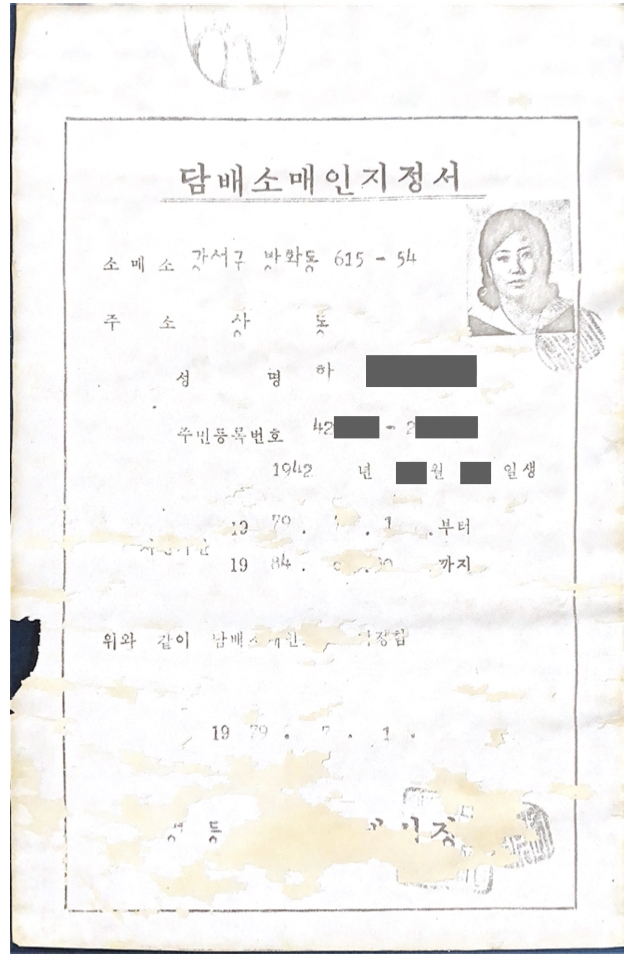 담배소매인지정서
소매소 강서구 방화동 615-54
주소 상동
성명 하
주민등록번호 42 - 2
1942 년 월 일생
1979. . 1 .부터
1984. . 30 까지
위와 같이 담배소매인 지정함
1979. 7. 1.